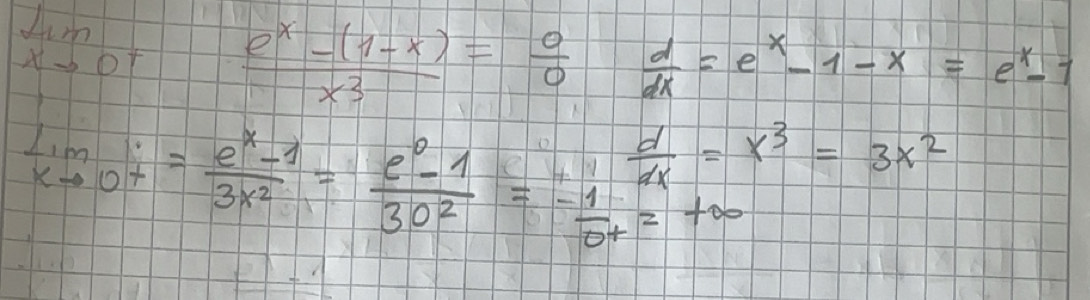 lim x→0+ (e^x - (1-x))/x^3 = 0/0 d/dx = e^x - 1 - x = e^x - 1
lim x→0+ = (e^x - 1)/(3x^2) = (e^0 - 1)/(30^2) = -1/0+ = +∞ d/dx = x^3 = 3x^2